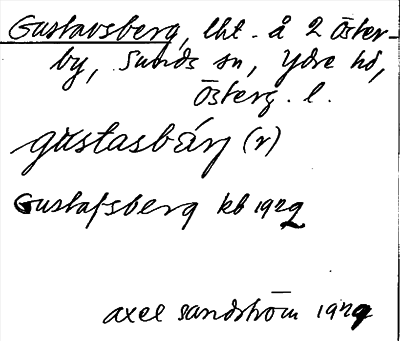 Gustavsberg, lht. å 2 Öster-
by, Sunds sn, Ydre hd,
Österg. l.
gustasbärj (r)
Gustafsberg kb 1929
Axel Sandström 1929